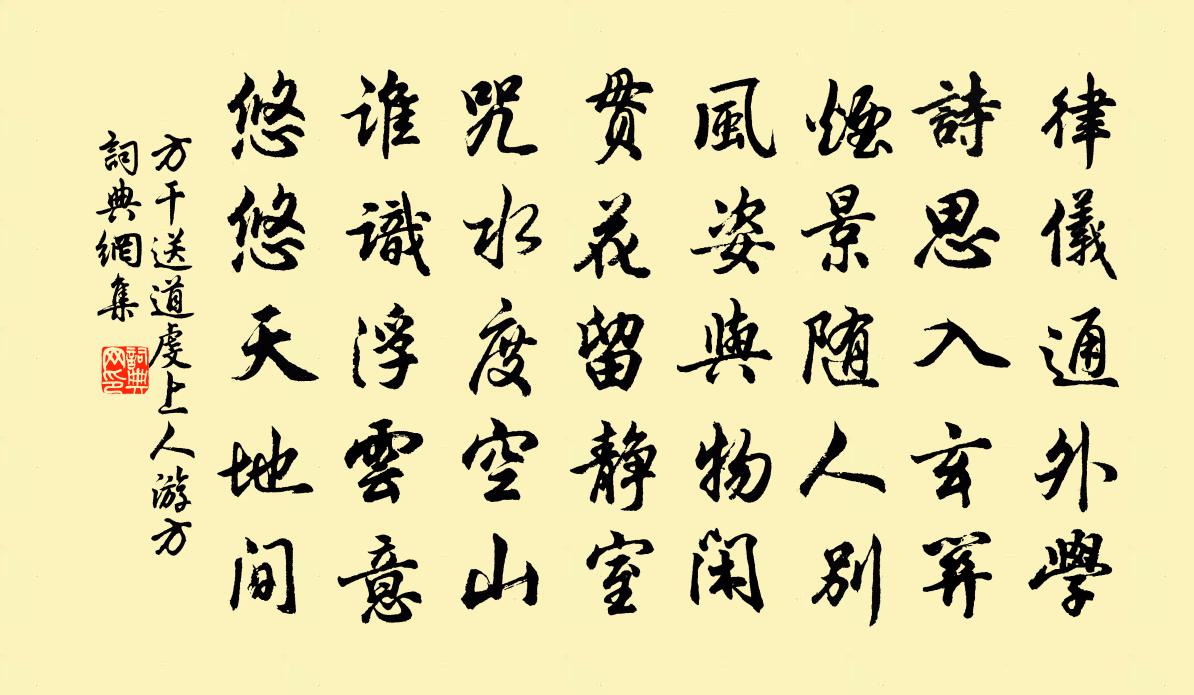 律儀通外學
詩思入玄關
煙景随人別
風姿與物閑
貫花留静室
咒水度空山
誰識浮雲意
悠悠天地間
方干送道虔上人游方
詞典網集
詞典网印